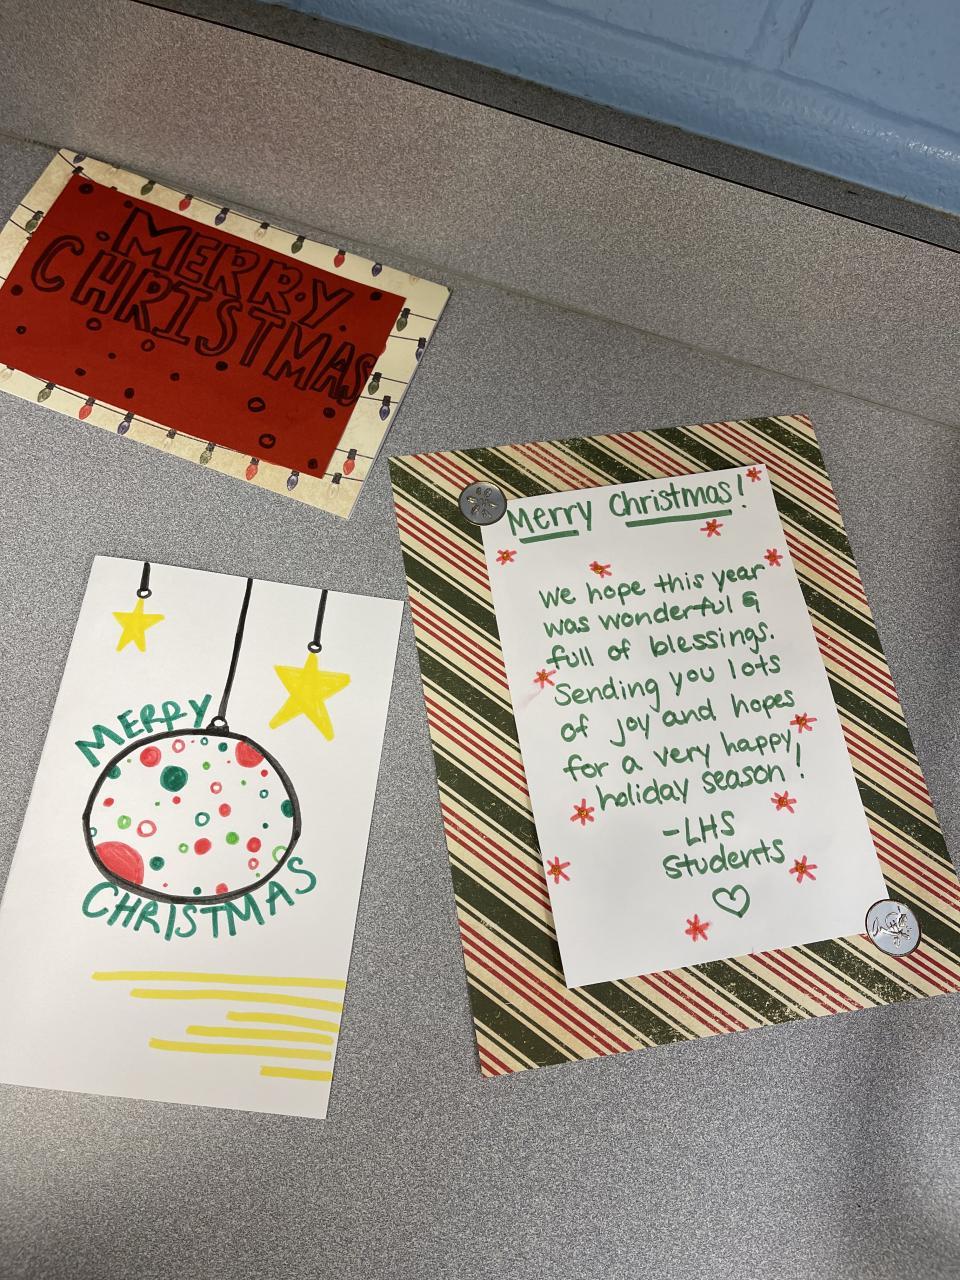 MERRY
CHRISTMAS
Merry Christmas!
we hope this year
was wonderful &
full of blessings.
Sending you lots
of joy and hopes
for a very happy
holiday season!
-LHS
students
MERRY
CHRISTMAS